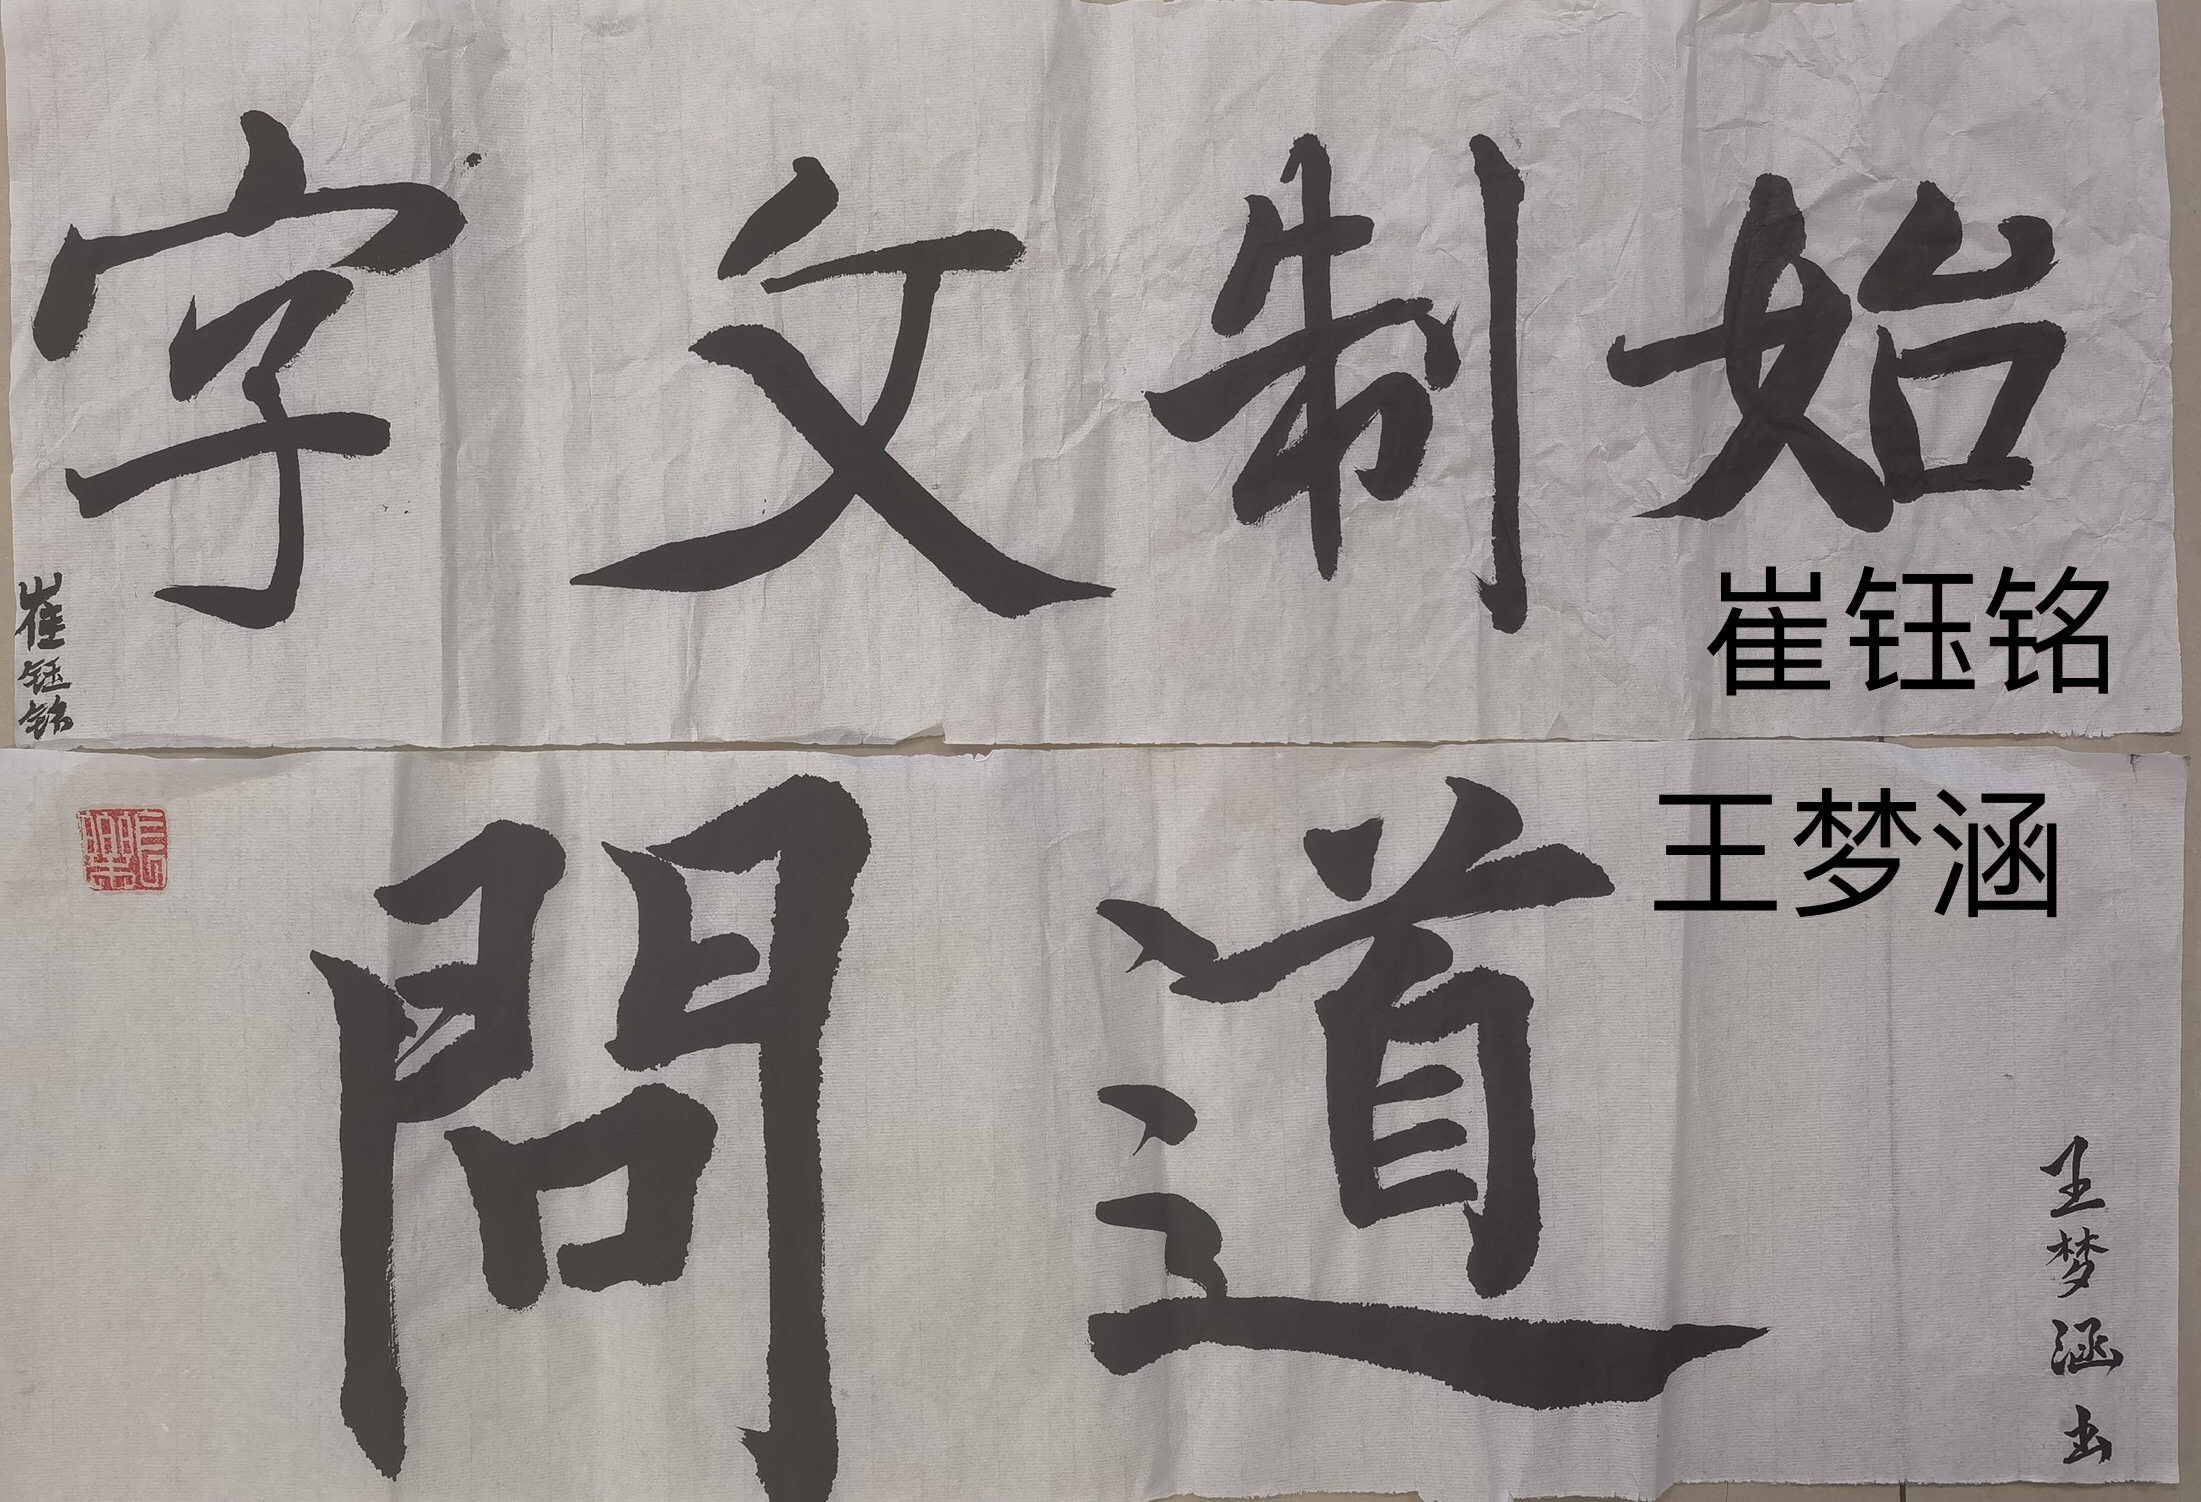 始制文字
崔钰铭
崔钰铭
道問
王梦涵
王梦涵书